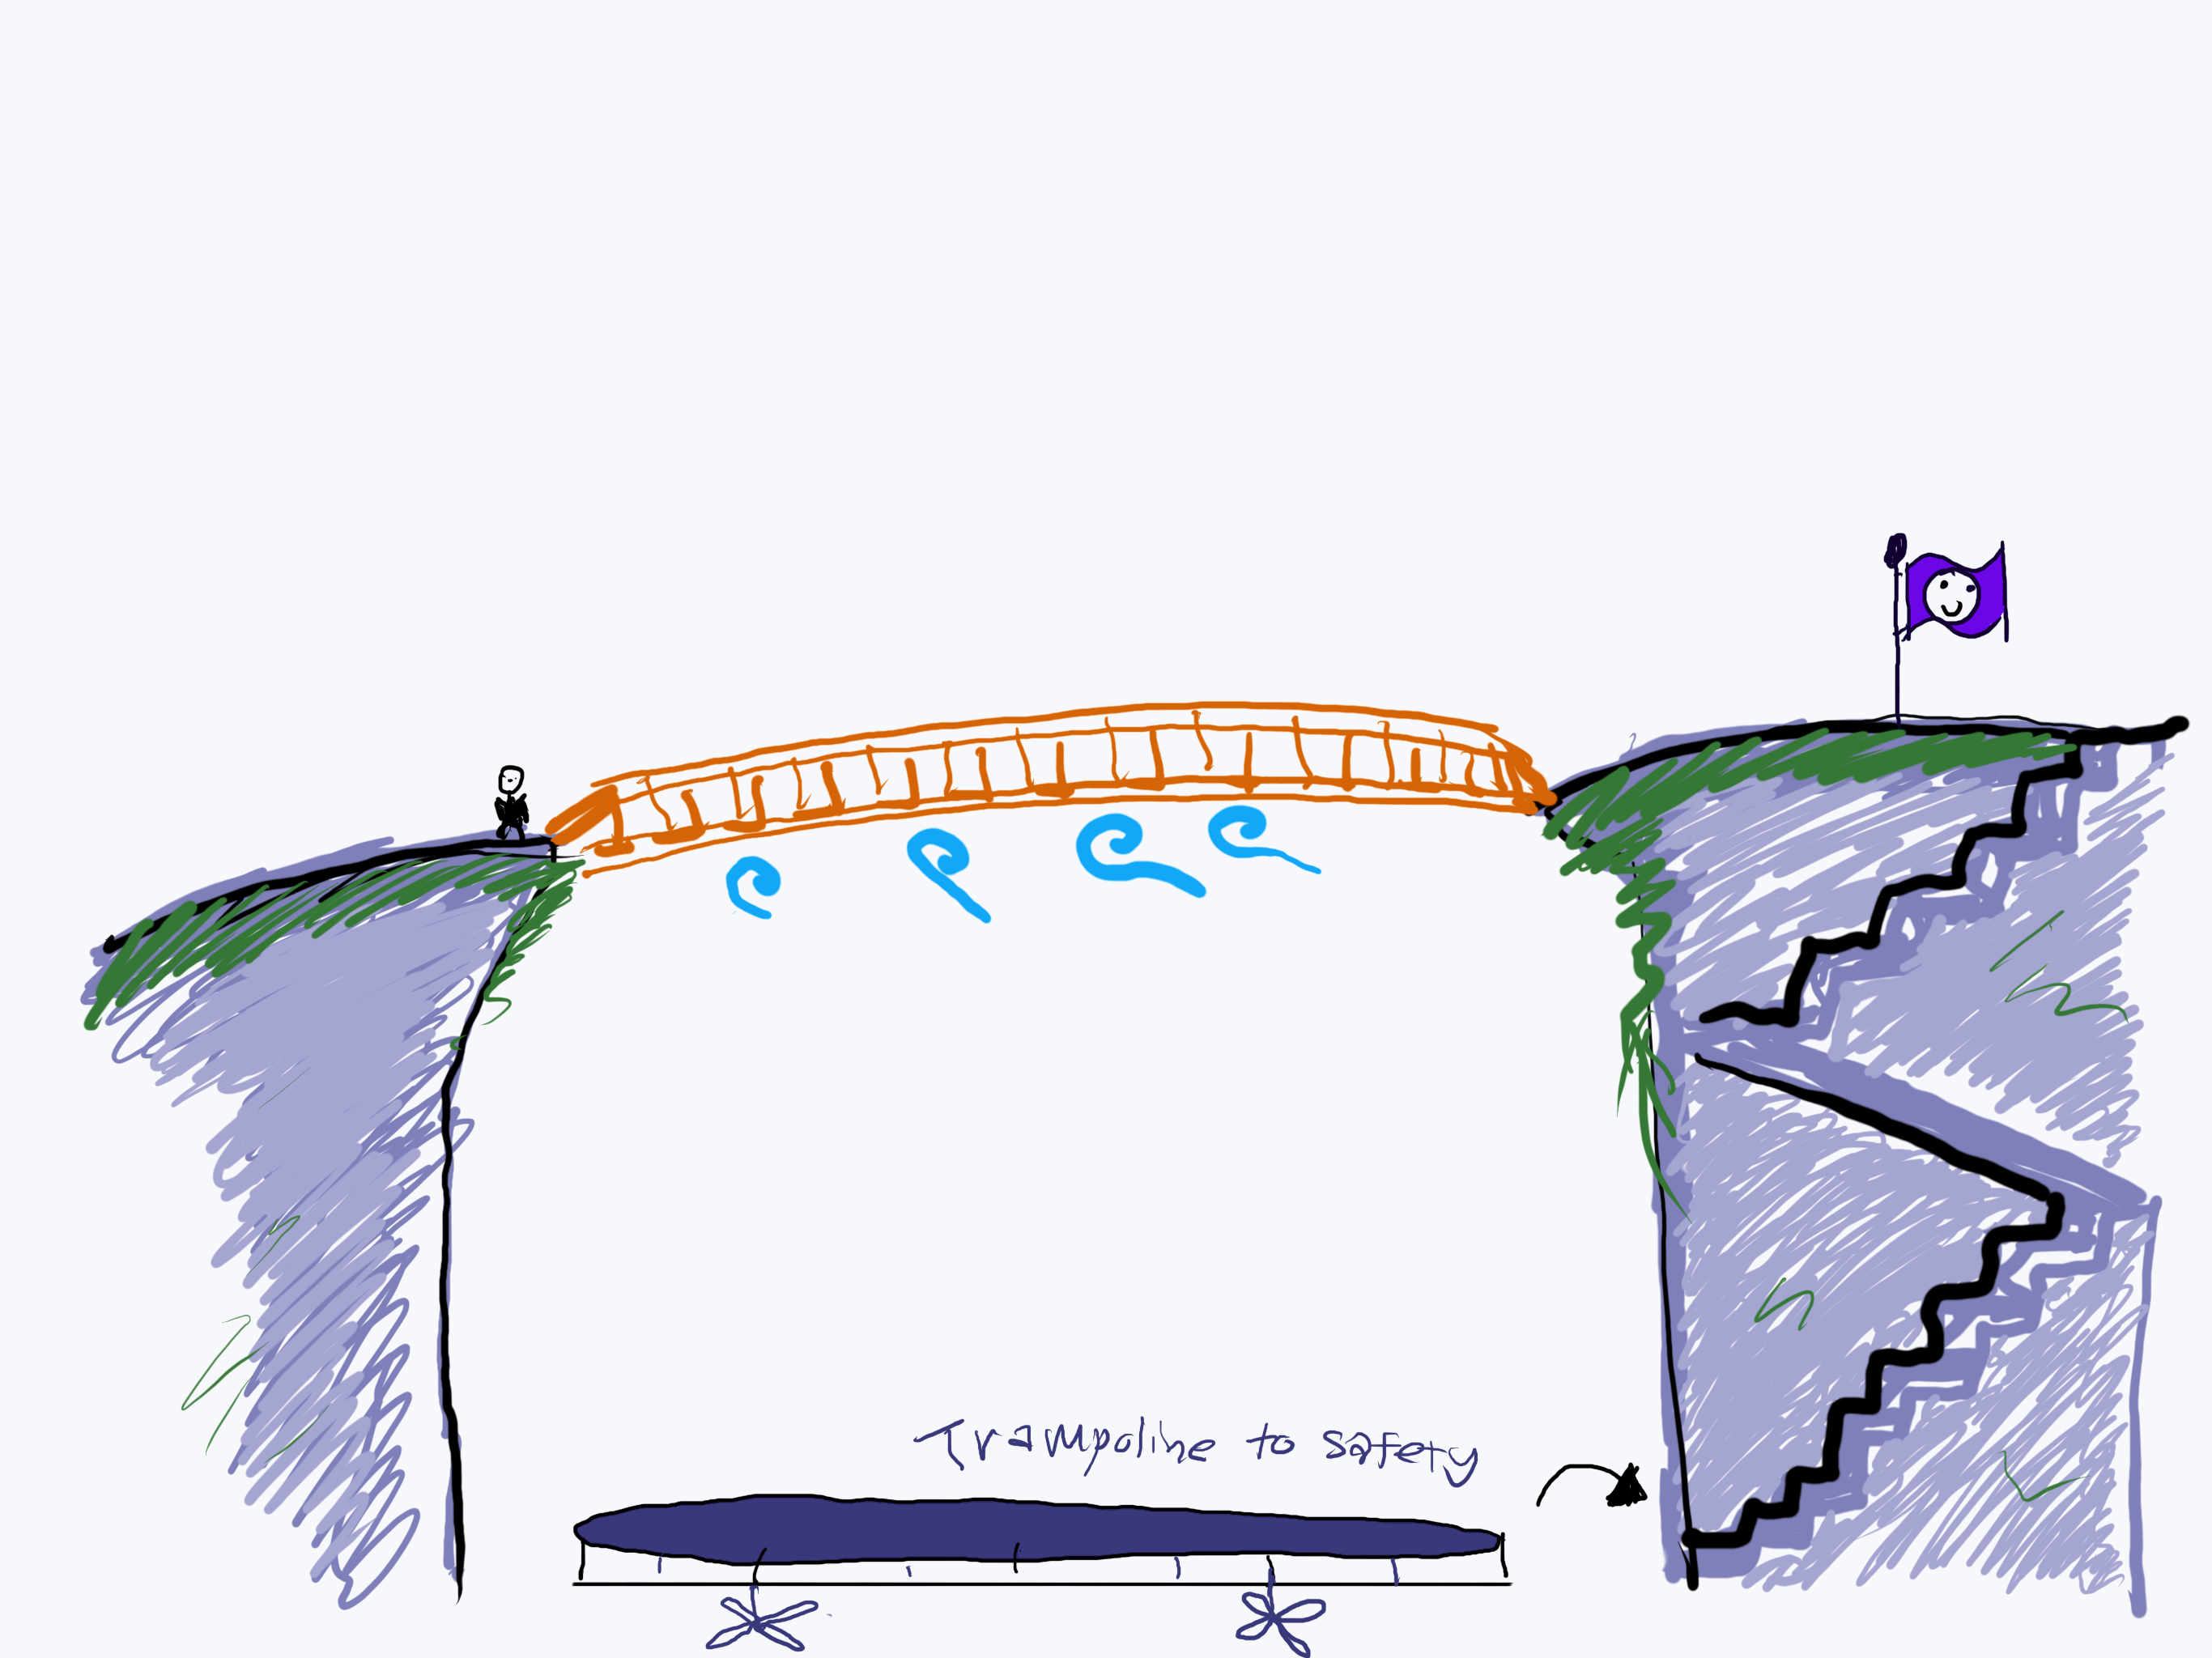 Trampoline to safety